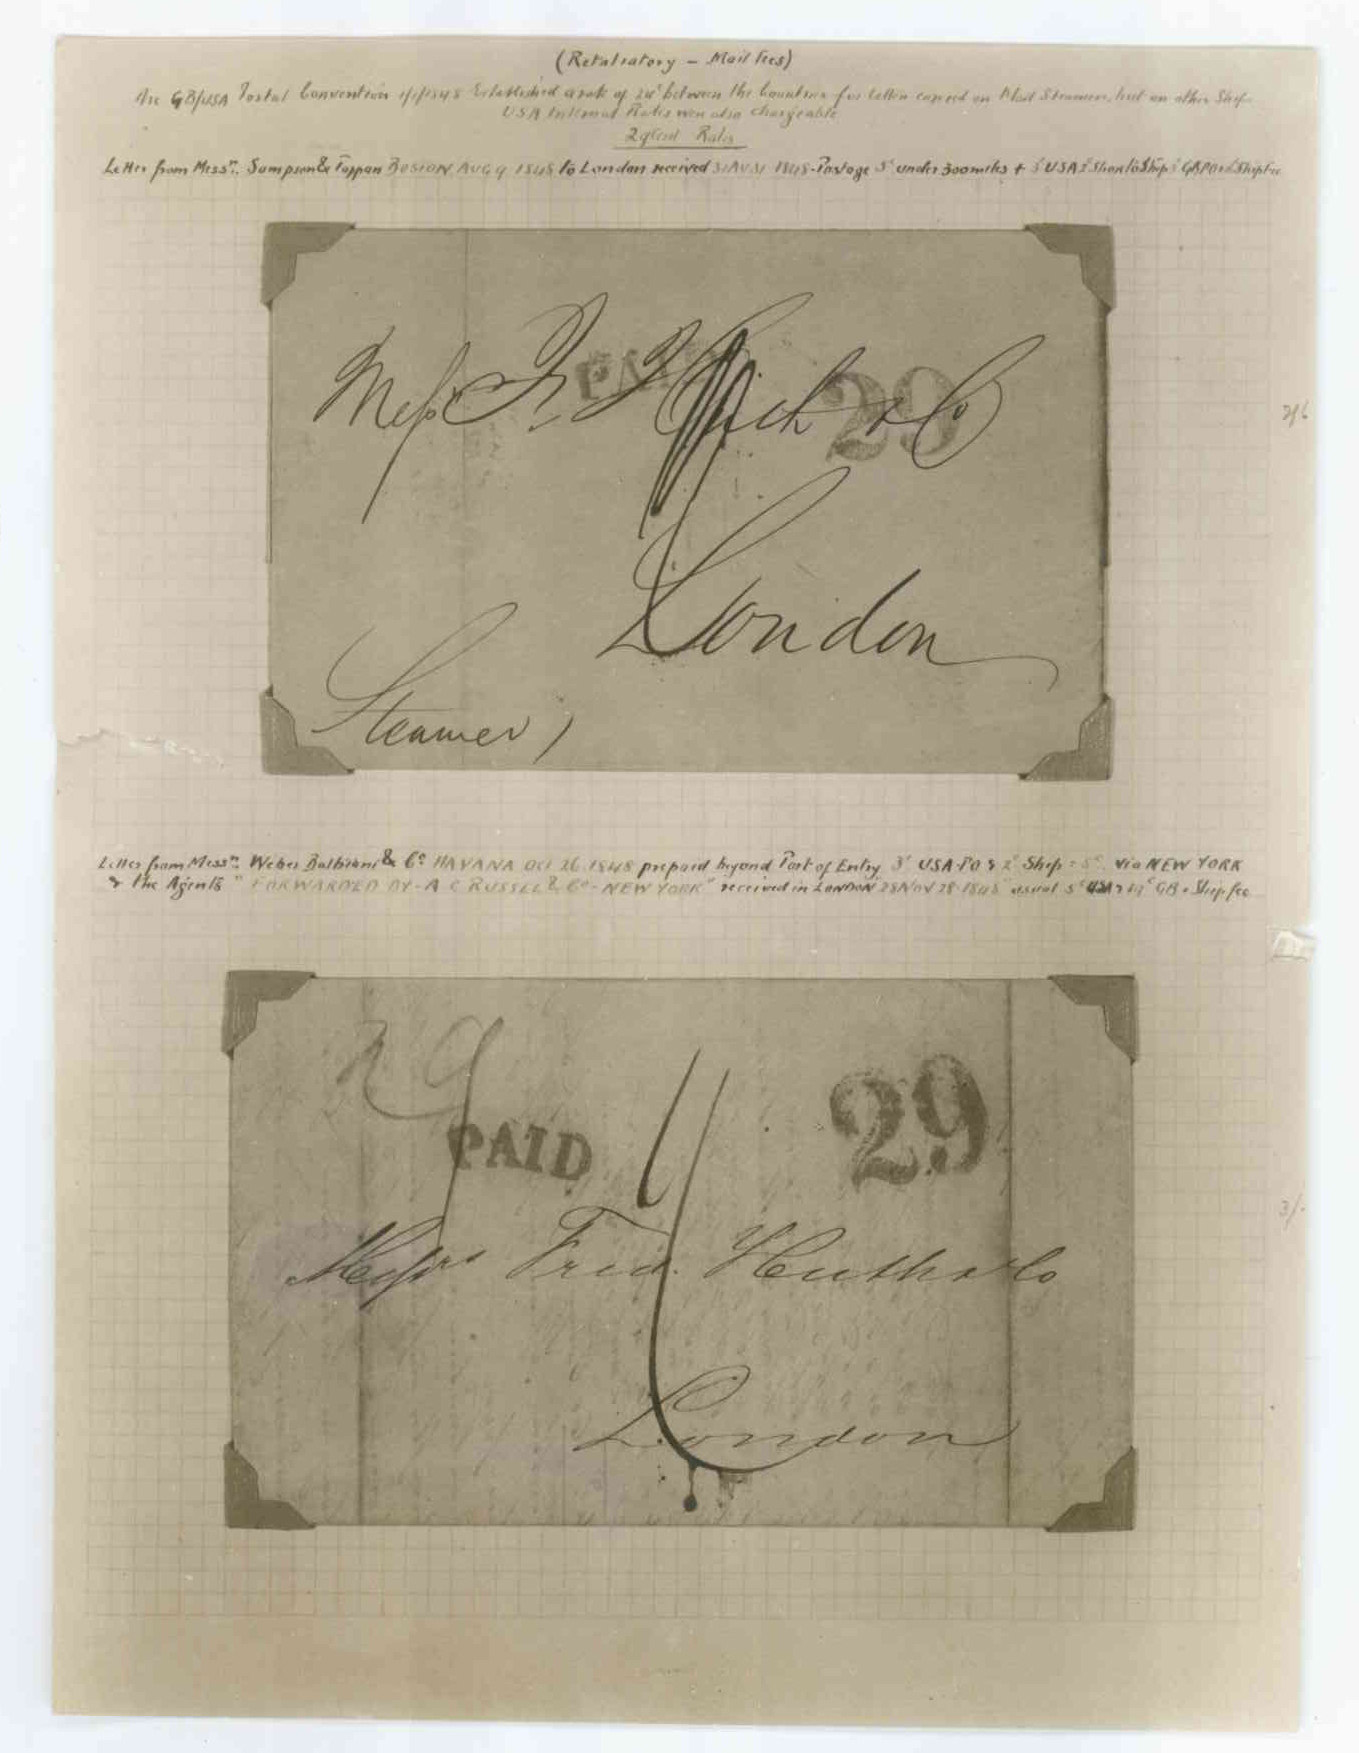 (Retaliatory - Mail Fees)
The GB/USA Postal Convention 1/1/1848 Established a rate of 24c between the Countries for letters carried on Mail Steamers, but on other Ship
USA Internal Rates were also chargeable
29cent Rates
Letter from Messrs. Sampson & Tappan BOSTON AUG 9 1848 to London received 31 AU 31 1848 - Postage 5c under 300 miles +
2/6
Messrs F. & Co
29
London
Steamer
Letter from Messrs. Weber Balbiani & Co HAVANA OCT 26 1848 prepaid beyond Port of Entry 3c USA PO & 2c Ship = 5c via NEW YORK
& the Agents "FORWARDED BY - A C RUSSELL & Co - NEW YORK" received in LONDON 28 NOV 28 1848 usual 5c USA GB + Ship fee
29
PAID
29
3/-
Messrs Fred. Huth & Co
London